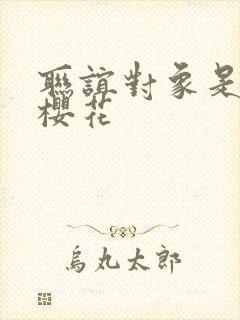 聯誼對象是
櫻花
烏丸太郎